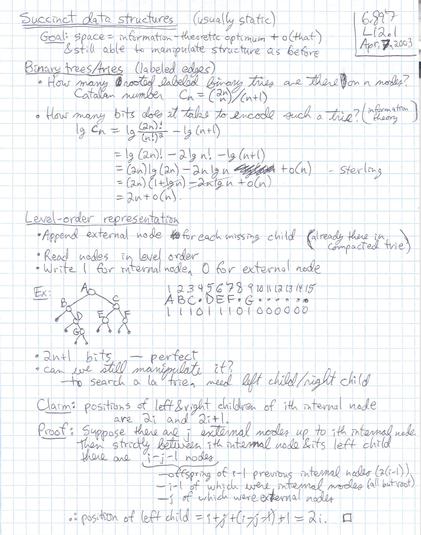 Succinct data structures (usually static)
Goal: space = information-theoretic optimum + o(that)
& still able to manipulate structure as before
6.897
L12.1
Apr. 7, 2003
Binary trees/tries (labeled edges)
• How many rooted labeled binary tries are there on n nodes?
Catalan number Cn = (2n n)/(n+1)
• How many bits does it take to encode such a trie? (information theory)
lg Cn = lg (2n)!/(n!)² - lg(n+1)
= lg(2n)! - 2lg n! - lg(n+1)
= (2n)lg(2n) - 2n lg n + o(n) - sterling
= (2n)(1+lg n) - 2n lg n + o(n)
= 2n + o(n).
Level-order representation
• Append external node for each missing child (already there in compacted trie)
• Read nodes in level order
• Write 1 for internal node, 0 for external node
Ex:
A
B C
D E F
G
1 2 3 4 5 6 7 8 9 10 11 12 13 14 15
A B C • D E F • G • • • • • •
1 1 1 0 1 1 1 0 1 0 0 0 0 0 0
• 2n+1 bits — perfect
• can we still manipulate it?
— to search a la trie, need left child/right child
Claim: positions of left & right children of ith internal node
are 2i and 2i+1.
Proof: Suppose there are j external nodes up to ith internal node
Then strictly between ith internal node & its left child
there are i-j-1 nodes
— offspring of i-1 previous internal nodes (2(i-1))
— i-1 of which were internal nodes (all but root)
— j of which were external nodes
∴ position of left child = i+j+(i-j-1)+1 = 2i. □